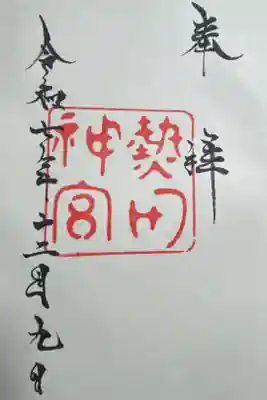 奉拝
熱田
神宮
令和六年十二月九日